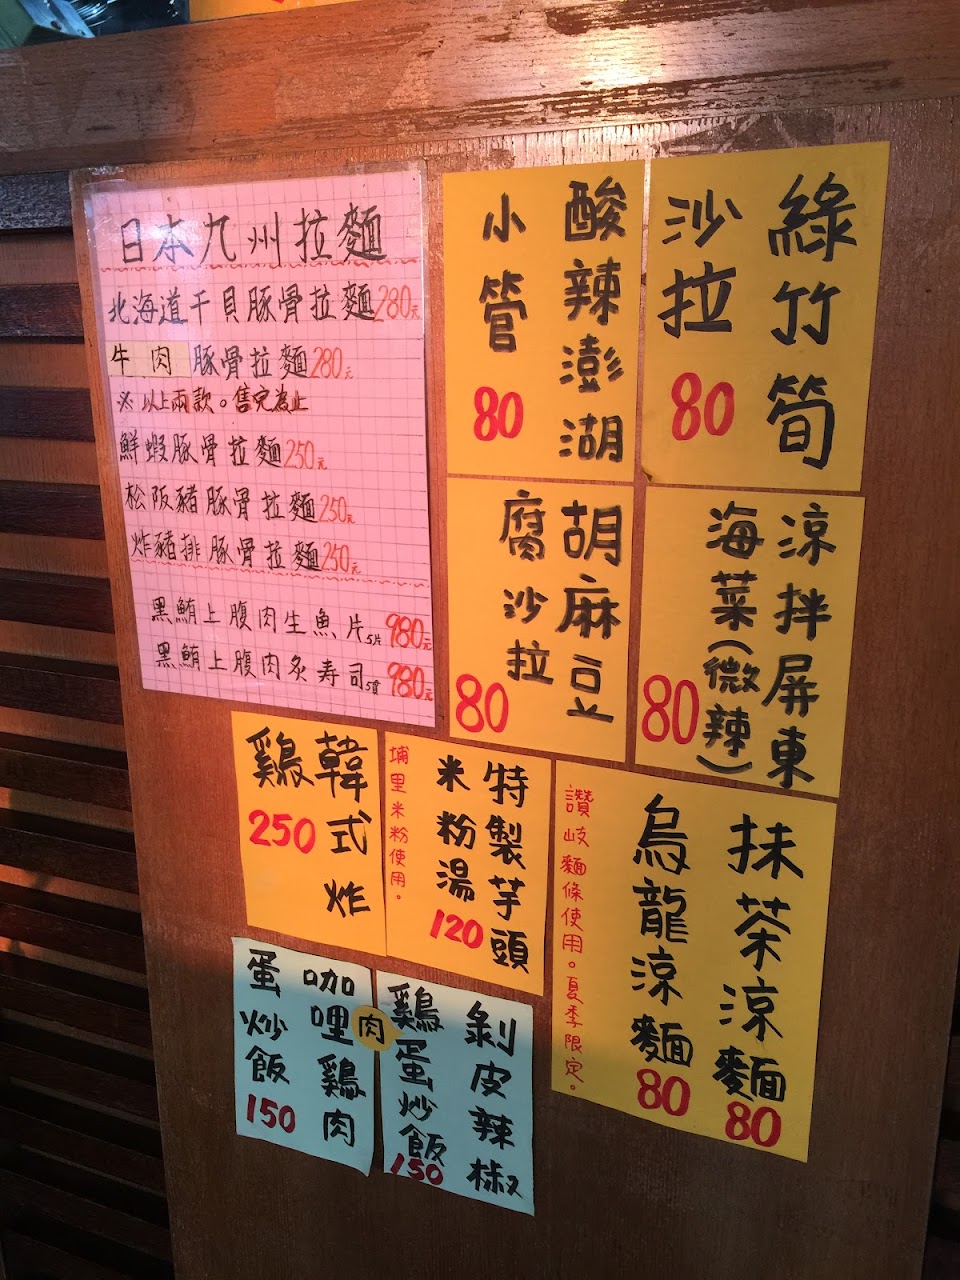 日本九州拉麵
北海道干貝豚骨拉麵280元
牛肉豚骨拉麵280元
※以上兩款。售完為止
鮮蝦豚骨拉麵250元
松阪豬豚骨拉麵250元
炸豬排豚骨拉麵250元
黑鮪上腹肉生魚片5片980元
黑鮪上腹肉炙寿司5貫980元
酸辣澎湖
小管
80
綠竹筍
沙拉
80
胡麻豆
腐沙拉
80
涼拌屏東
海菜(微辣)
80
韓式炸
雞
250
特製芋頭
米粉湯
120
埔里米粉使用。
抹茶涼麵
80
烏龍涼麵
80
讚岐麵條使用。夏季限定。
咖哩雞肉
蛋炒飯
150
剝皮辣椒
雞肉蛋炒飯
150